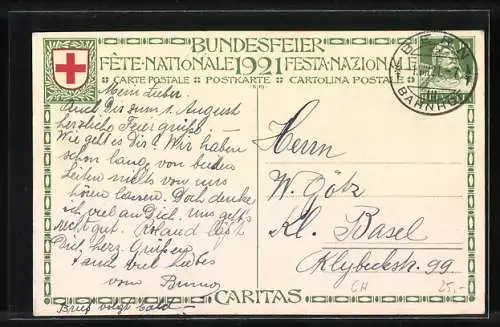 BUNDESFEIER
FÊTE·NATIONALE 1921 FESTA·NAZIONALE
CARTE POSTALE • POSTKARTE • CARTOLINA POSTALE
BAHNHOF
Mein Lieber.
Auch Dir zum 1. August
herzliche Feiergrüsse.
Wie geht es Dir? Wir haben
schon lang von beiden
Seiten nichts von uns
hören lassen. Doch denke
ich viel an Dich. Uns geht's
recht gut. Roland lässt
Dich herz. Grüssen
& auch viel liebes
vom Bruno
Brief folgt bald.
Herrn
W. Götz
Kl. Basel
Klybeckstr. 99
CH
25.-
CARITAS